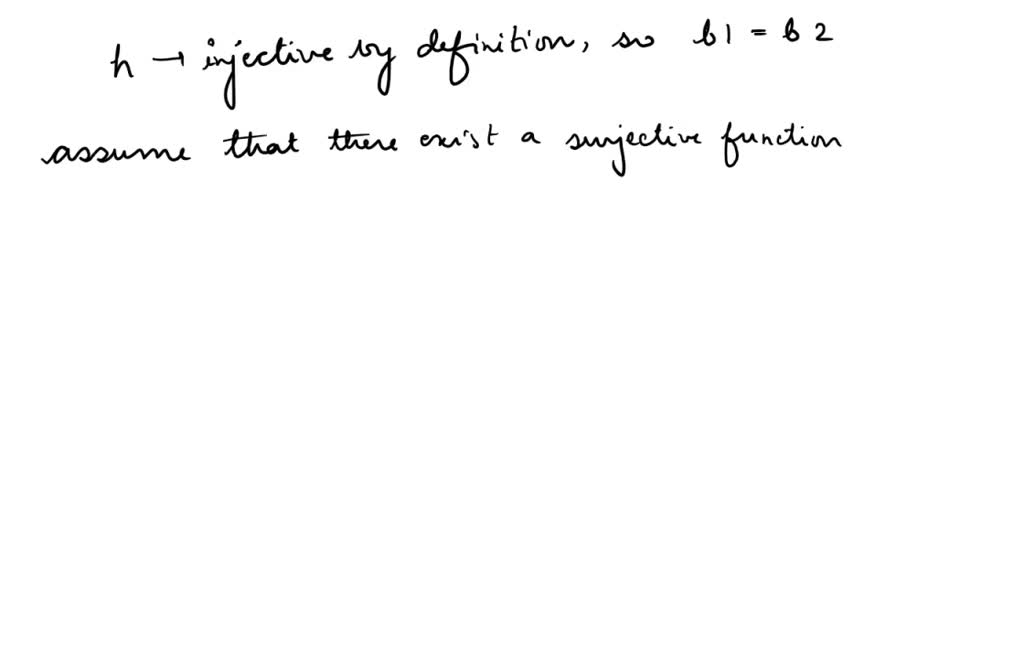 h → injective by definition, so b1 = b2
assume that there exist a surjective function